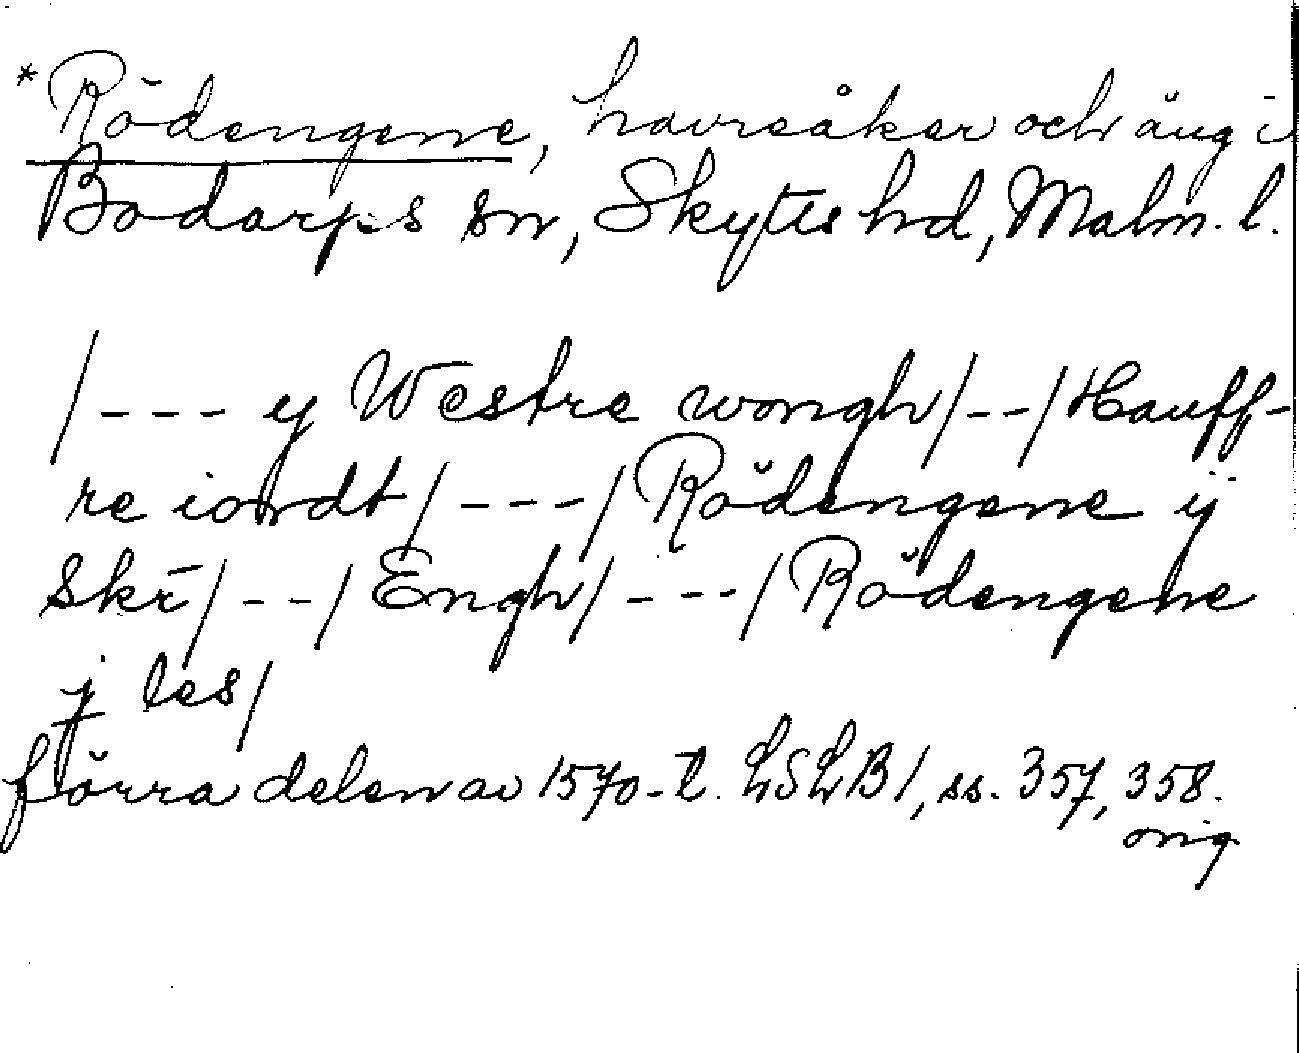 * Rödengene, havreåker och äng i
Bodarps sn, Skytts hd, Malm. l.
/--- y Westre wongh/--/Hauff-
re iordt/---/Rödengene ij
Skr̄/--/Engh/---/Rödengene
j les/
förra delen av 1570-t. LSLB1, ss. 357, 358.
orig